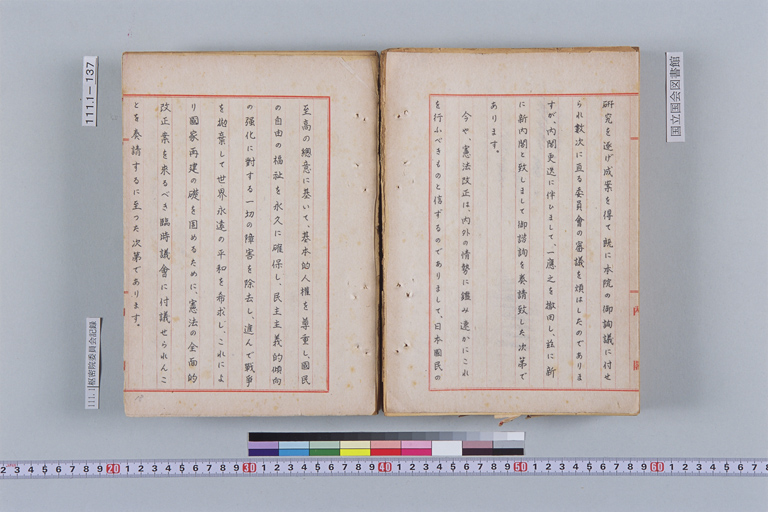 研究を遂げ成案を得て既に本院の御諮議に付せ
られ数次に亘る委員會の審議を煩はしたのでありま
すが、内閣更迭に伴ひまして、一應之を撤回し、茲に新
に新内閣と致しまして御諮詢を奏請致した次第で
あります。
今や、憲法改正は内外の情勢に鑑み速かにこれ
を行ふべきものと信ずるのでありまして、日本國民の
至高の總意に基いて、基本的人權を尊重し、國民
の自由の福祉を永久に確保し、民主主義的傾向
の强化に對する一切の障害を除去し、進んで戰爭
を抛棄して世界永遠の平和を希求し、これによ
り國家再建の礎を固めるために、憲法の全面的
改正案を來るべき臨時議會に付議せられんこ
とを奏請するに至つた次第であります。
内閣
111.1-137
111.1枢密院委員会記録
国立国会図書館
2 3 4 5 6 7 8 9 20 1 2 3 4 5 6 7 8 9 30 1 2 3 4 5 6 7 8 9 40 1 2 3 4 5 6 7 8 9 50 1 2 3 4 5 6 7 8 9 60 1 2 3 4 5 6 7